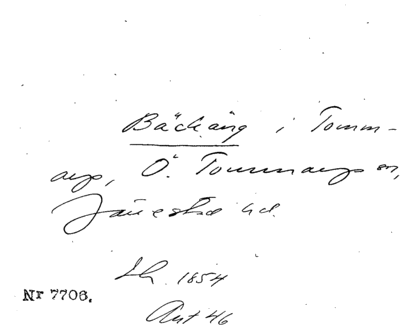 Bäckäng i Tomm-
arp, Ö. Tommarps sn,
Järrestad hd.
Lh. 1854
Ant 46
Nr 7706.